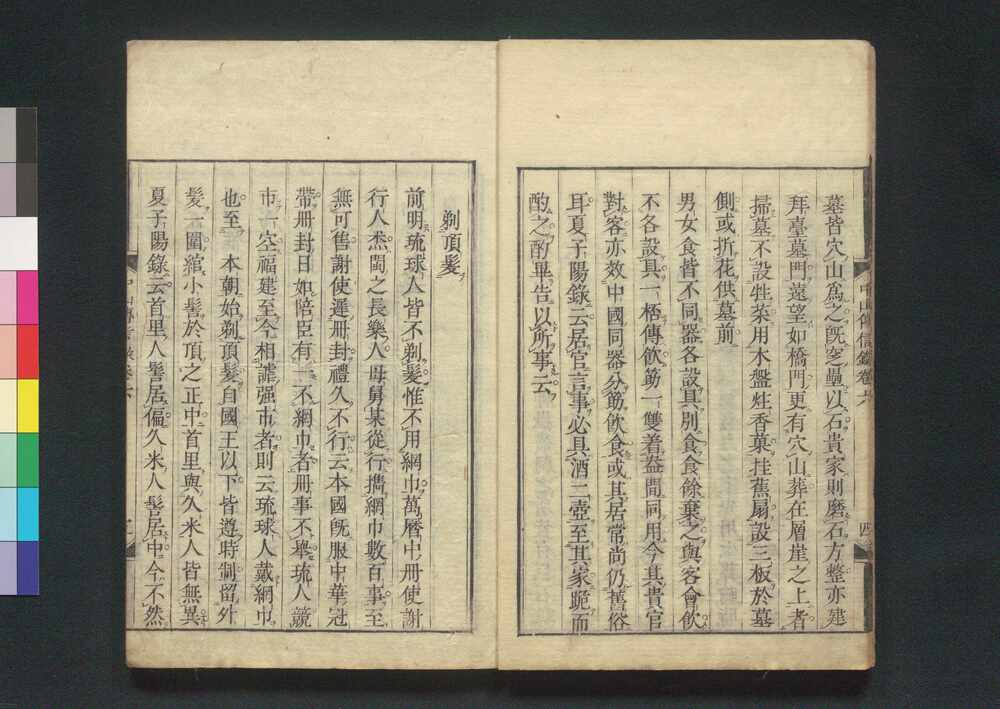 墓皆穴山爲之旣窆壘以石貴家則磨石方整亦建
拜臺墓門遠望如橋門更有穴山葬在層崖之上者
掃墓不設牲菜用木盤炷香菓挂蕉扇設三板於墓
側或折花供墓前
男女食皆不同器各設具別食食餘棄之與客會飲
不各設具一桮傳飲筯一雙着盌間同用今其貴官
對客亦效中國同器分筯飲食或其居常尚仍舊俗
耳夏子陽錄云居官言事必具酒二壺至其家跪而
酌之酌畢告以所事云
剃頂髮
前明琉球人皆不剃髮惟不用網巾萬曆中册使謝
行人杰閩之長樂人母舅某從行擕網巾數百事至
無可售謝使遲册封禮久不行云本國旣服中華冠
帶册封日如陪臣有一不網巾者册事不舉琉人競
市一空福建至今相謔强市者則云琉球人戴網巾
也至 本朝始剃頂髮自國王以下皆遵時制留外
髮一圍綰小髻於頂之正中首里與久米人皆無異
夏子陽錄云首里人髻居偏久米人髻居中今不然